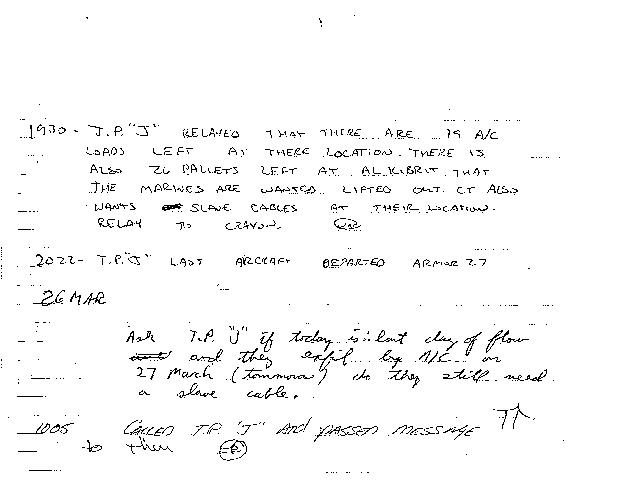 1930 - T.P. "J" RELAYED THAT THERE ARE 19 A/C
LOADS LEFT AT THERE LOCATION. THERE IS
ALSO 26 PALLETS LEFT AT AL KIBRIT THAT
THE MARINES ARE WANTED LIFTED OUT. CT ALSO
WANTS SLAVE CABLES AT THEIR LOCATION.
RELAY TO CRAYON.
2022 - T.P. "J" LAST ARCRAFT DEPARTED ARMOR 27
26 MAR
Ask T.P. "J" if today is last day of flow
and they exfil by A/C on
27 March (tommorow) do they still need
a slave cable.
1005 CALLED T.P. "J" AND PASSED MESSAGE
to them